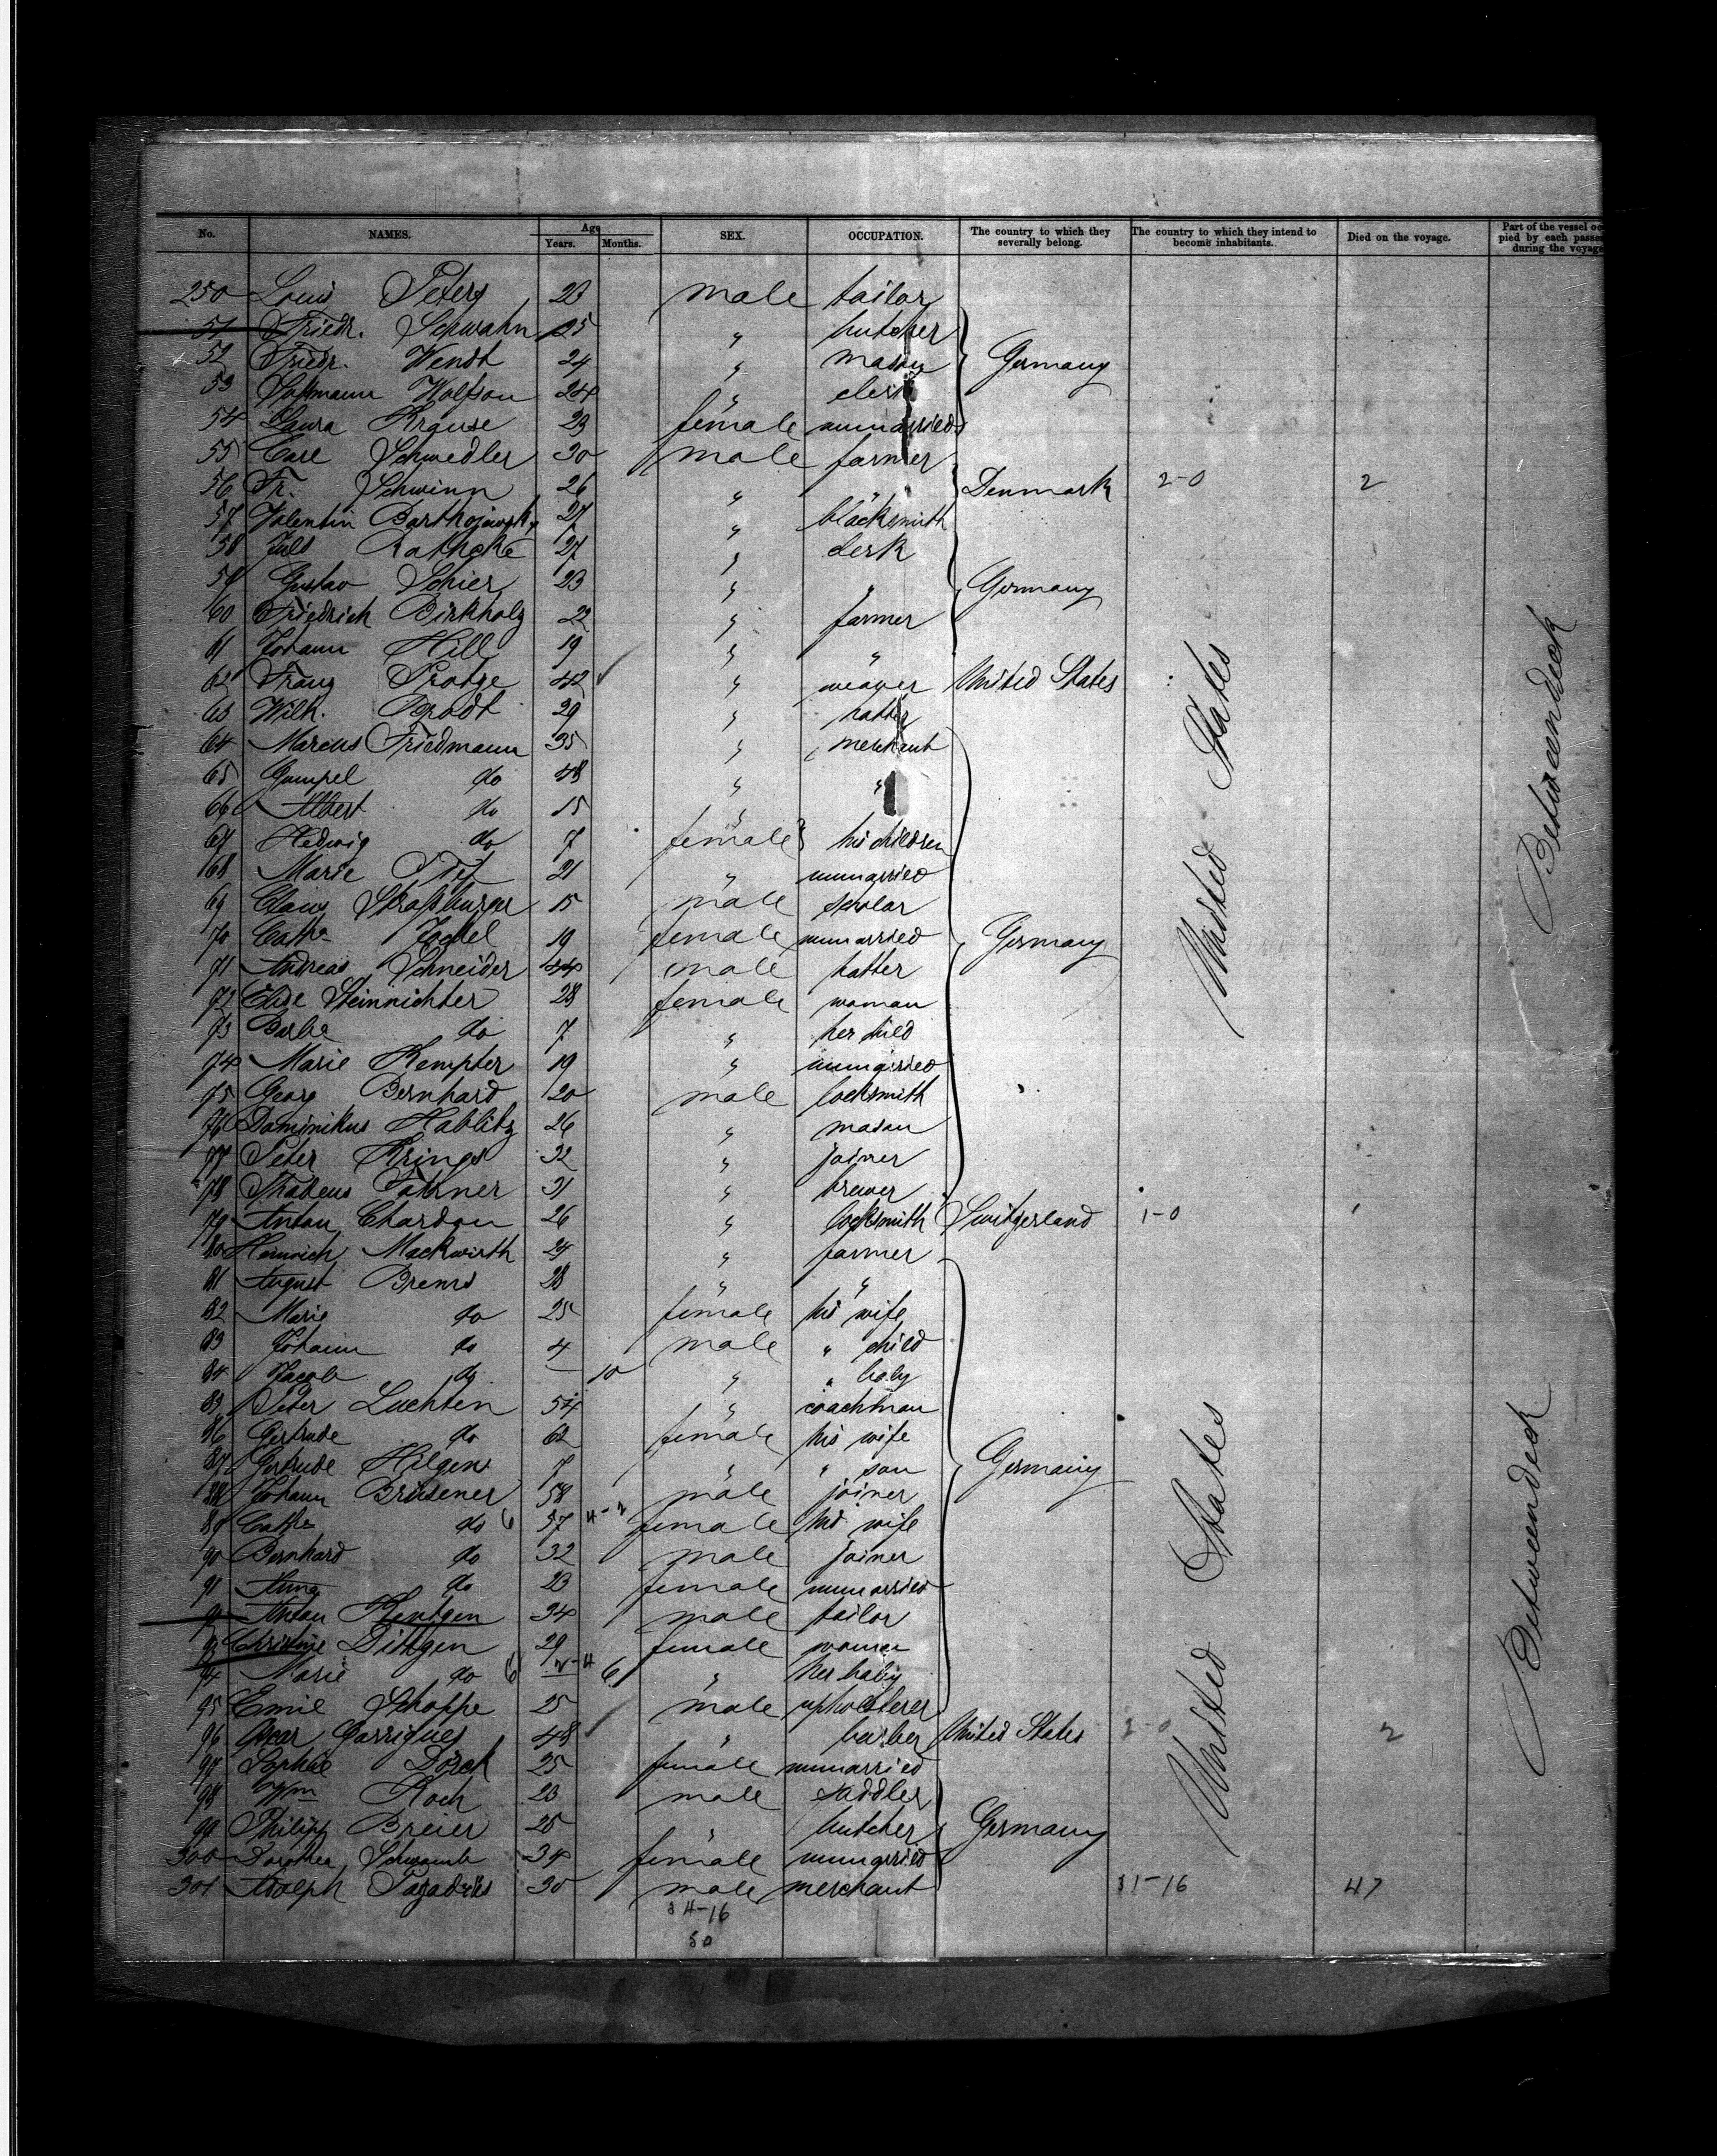 No. NAMES. Age Years. Months. SEX. OCCUPATION. The country to which they severally belong. The country to which they intend to become inhabitants. Died on the voyage. Part of the vessel oc pied by each passe during the voyage
250 Louis Peters 23 male tailor
51 Friedr. Schwahn 25 " butcher
52 Friedr. Wendt 24 " mason Germany
53 Wolfson 24 " clerk
54 Laura Krause 23 female unmarried
55 Carl Schwedler 30 male farmer
56 Fr. Schwinn 26 " " Denmark 2-0 2
57 Valentin 27 " blacksmith
58 Juls Rathcke 27 " clerk
59 Gustav Schier 23 " " Germany
60 Friedrich Birkholz 22 " farmer
61 Johann Hill 19 " "
62 Franz Protze 42 " weaver United States
63 Wilh. 29 " hatter
64 Marcus Friedmann 35 " merchant
65 Gumpel do 48 " "
66 Albert do 15 "
67 Hedwig do 7 female his children
68 Marie 21 " unmarried
69 Claus Straßburger 15 male scholar
70 Cathe 19 female unmarried Germany
71 Andreas Schneider 44 male hatter
72 Elise Steinrichter 28 female woman
73 Barbe do 7 " her child
74 Marie Kempter 19 " unmarried
75 Georg Bernhard 20 male locksmith
76 Dominikus Hablitz 26 " mason
77 Peter Krings 32 " joiner
78 Thadeus 31 " brewer
79 Anton Chardon 26 " locksmith Switzerland 1-0
80 Heinrich Mackwirth 24 " farmer
81 August Brems 28 " "
82 Marie do 25 female his wife
83 Johann do 4 male " child
84 Jacob do 10 " " baby
85 Peter Luchten 54 " coachman
86 Gertrude do 62 female his wife
87 Gertrude Hilgen 7 " " son Germany
88 Johann Brüsener 58 male joiner
89 Cathe do 57 female his wife
90 Bernhard do 32 male joiner
91 Anna do 23 female unmarried
Anton Kentgen 34 male tailor
93 Christine Dittgen 29 female woman
94 Marie do 6 " her baby
95 Emil Schoppe 25 male upholsterer
96 Oscar Garrigues 48 " barber United States 2-0 2
97 Sophie Dörck 25 female unmarried
98 Wm Koch 23 male saddler
99 Philipp Breier 25 " butcher Germany
300 Dorothea Schwamb 34 female unmarried
301 Adolph 30 male merchant 31-16 47
34-16
50
United States
United States
Betweendeck
Betweendeck